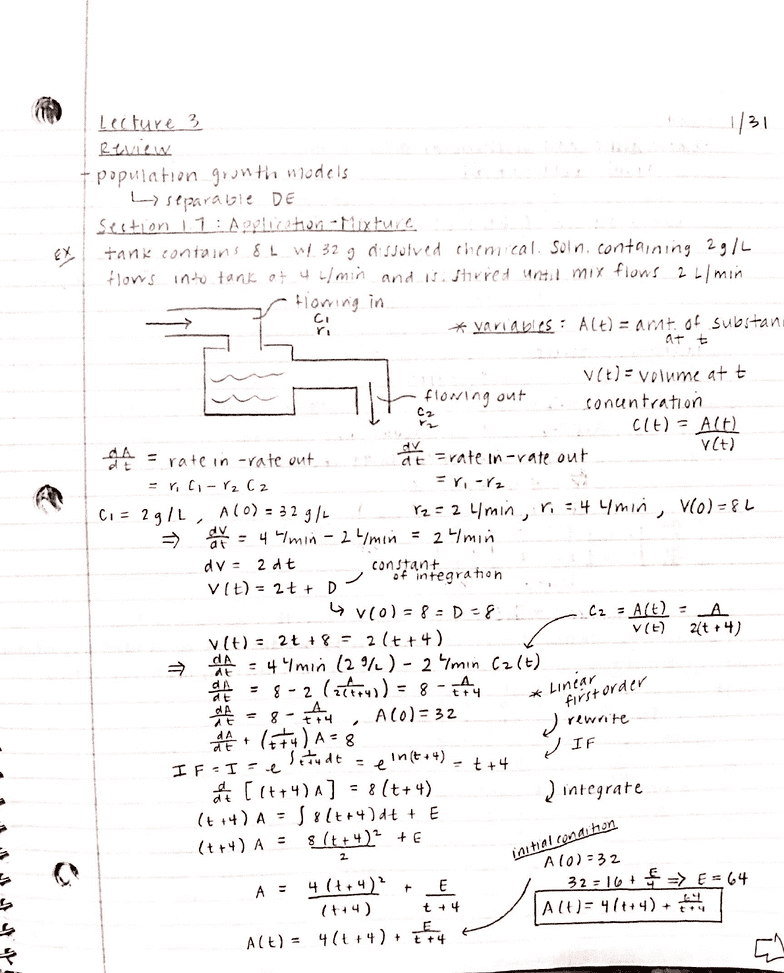 Lecture 3 1/31
Review
- population growth models
↳ separable DE
Section 1.7: Application-Mixture
ex/ tank contains 8 L w/ 32 g dissolved chemical. Soln. containing 2g/L
flows into tank at 4 L/min and is stirred until mix flows 2 L/min
flowing in
C₁
r₁
* variables: A(t) = amt. of substan
at t
V(t) = volume at t
flowing out
C₂
r₂
concentration
C(t) = A(t)/V(t)
dA/dt = rate in - rate out
= r₁C₁ - r₂C₂
dV/dt = rate in - rate out
= r₁ - r₂
C₁ = 2g/L, A(0) = 32 g/L r₂ = 2 L/min, r₁ = 4 L/min, V(0) = 8L
⇒ dV/dt = 4 L/min - 2 L/min = 2 L/min
dV = 2 dt
V(t) = 2t + D
constant
of integration
↳ V(0) = 8 = D = 8
C₂ = A(t)/V(t) = A/2(t+4)
V(t) = 2t + 8 = 2(t+4)
⇒ dA/dt = 4 L/min (2 g/L) - 2 L/min C₂(t)
dA/dt = 8 - 2 (A/2(t+4)) = 8 - A/t+4
* Linear
first order
dA/dt = 8 - A/t+4, A(0) = 32
) rewrite
dA/dt + (1/t+4) A = 8
) IF
IF = I = e^∫1/t+4 dt = e^ln(t+4) = t+4
d/dt [(t+4)A] = 8(t+4)
) integrate
(t+4)A = ∫8(t+4)dt + E
(t+4)A = 8(t+4)²/2 + E
initial condition
A(0) = 32
32 = 16 + E/4 ⇒ E = 64
A(t) = 4(t+4) + 64/t+4
A = 4(t+4)²/(t+4) + E/t+4
A(t) = 4(t+4) + E/t+4